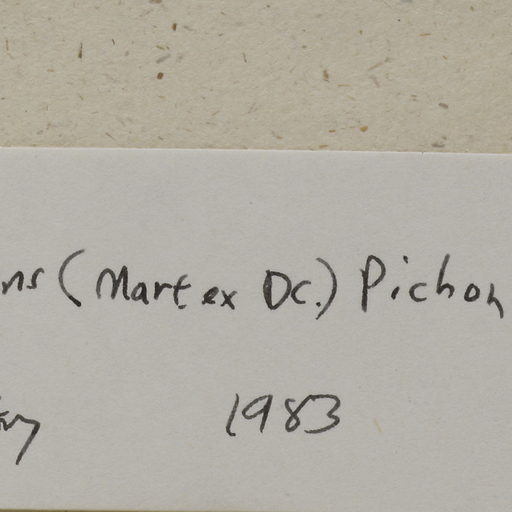 ns (Mart ex DC.) Pichon
1983